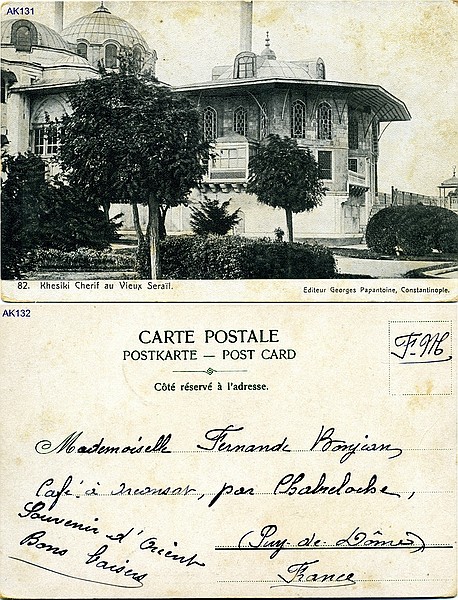 AK131
82. Khesiki Cherif au Vieux Seraïl.
Editeur Georges Papantoine, Constantinople.
AK132
CARTE POSTALE
POSTKARTE — POST CARD
Côté réservé à l'adresse.
F-M
Mademoiselle Fernande Bonjean
Café à par Chabreloche,
(Puy-de-Dôme)
France
Souvenir d'Orient
Bons baisers